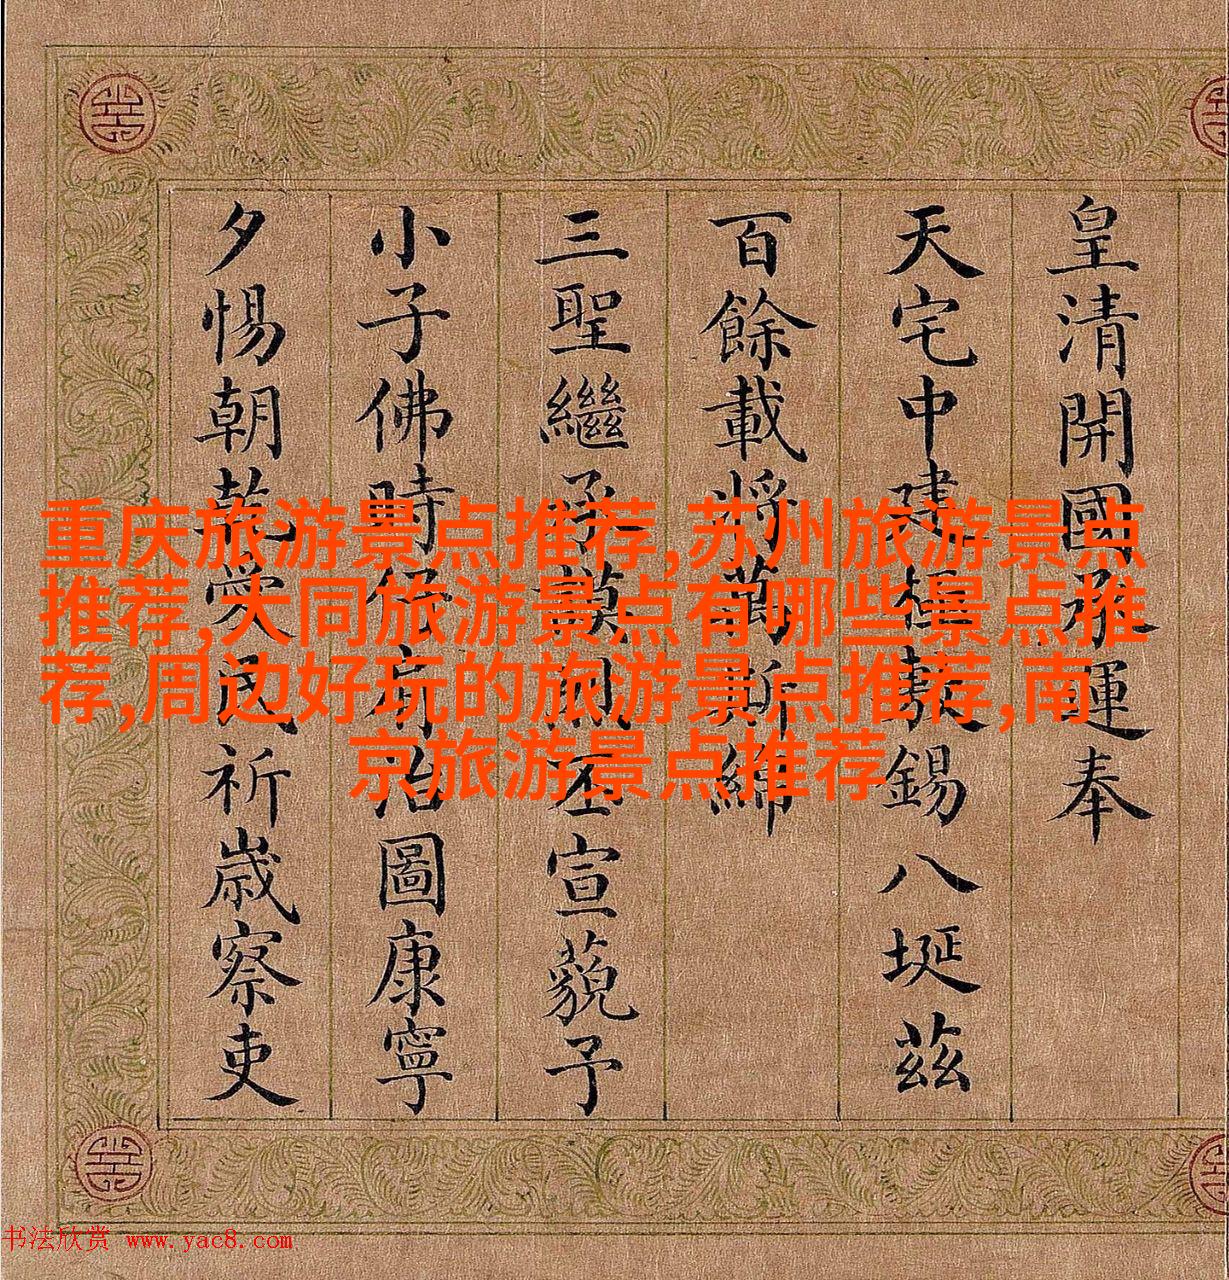 皇清開國承運奉
天宅中建極錫八埏茲
百餘載將萬斯綿
三聖繼承謨丕宣藐予
小子佛時治圖康寧
夕惕朝乾愛民祈歲察吏
重庆旅游景点推荐,苏州旅游景点
推荐,大同旅游景点有哪些景点推
荐,周边好玩的旅游景点推荐,南
京旅游景点推荐
书法欣赏 www.yac8.com